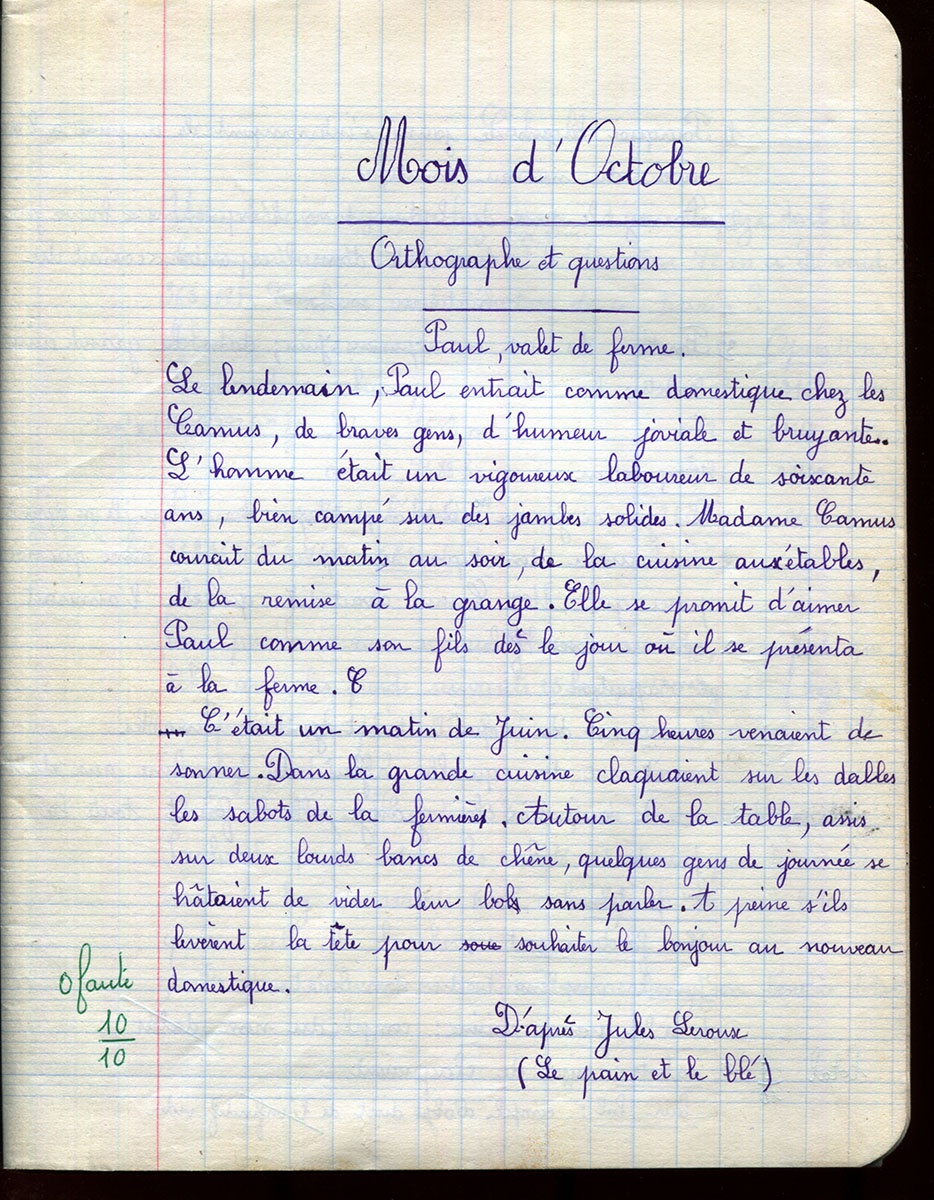 Mois d'Octobre
Orthographe et questions
Paul, valet de ferme.
Le lendemain, Paul entrait comme domestique chez les
Camus, de braves gens, d'humeur joviale et bruyante..
L'homme était un vigoureux laboureur de soixante
ans, bien campé sur des jambes solides. Madame Camus
courait du matin au soir, de la cuisine aux étables,
de la remise à la grange. Elle se promit d'aimer
Paul comme son fils dès le jour où il se présenta
à la ferme. C
C'était un matin de Juin. Cinq heures venaient de
sonner. Dans la grande cuisine claquaient sur les dalles
les sabots de la fermière. Autour de la table, assis
sur deux lourds bancs de chêne, quelques gens de journée se
hâtaient de vider leur bol sans parler. A peine s'ils
levèrent la tête pour sou souhaiter le bonjour au nouveau
domestique.
0 faute
10
10
D'après Jules Leroux
(Le pain et le blé)